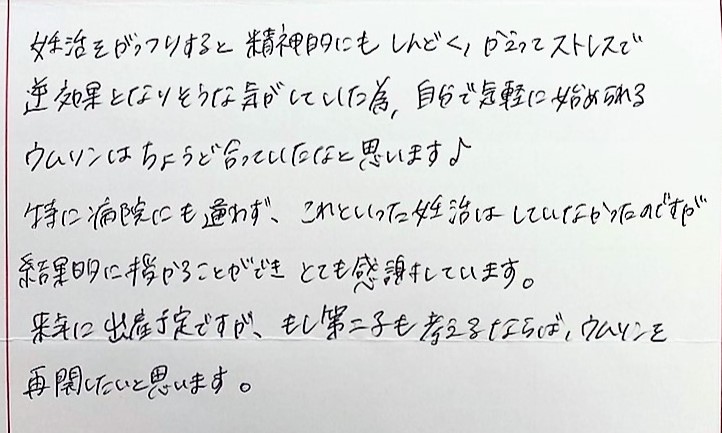 妊活をがっつりすると精神的にもしんどく、かえってストレスで
逆効果となりそうな気がしていた為、自分で気軽に始められる
ウムリンはちょうど合っていたなと思います♪
特に病院にも通わず、これといった妊活はしていなかったのですが
結果的に授かることができとても感謝しています。
来年に出産予定ですが、もし第二子も考えるならば、ウムリンを
再開したいと思います。